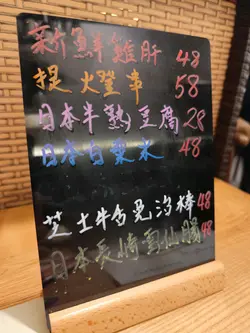 新鮮雞肝 48
提燈串 58
日本半熟豆腐 28
日本白粟米 48
芝士牛免治棒 48
日本長崎雲仙腸 48